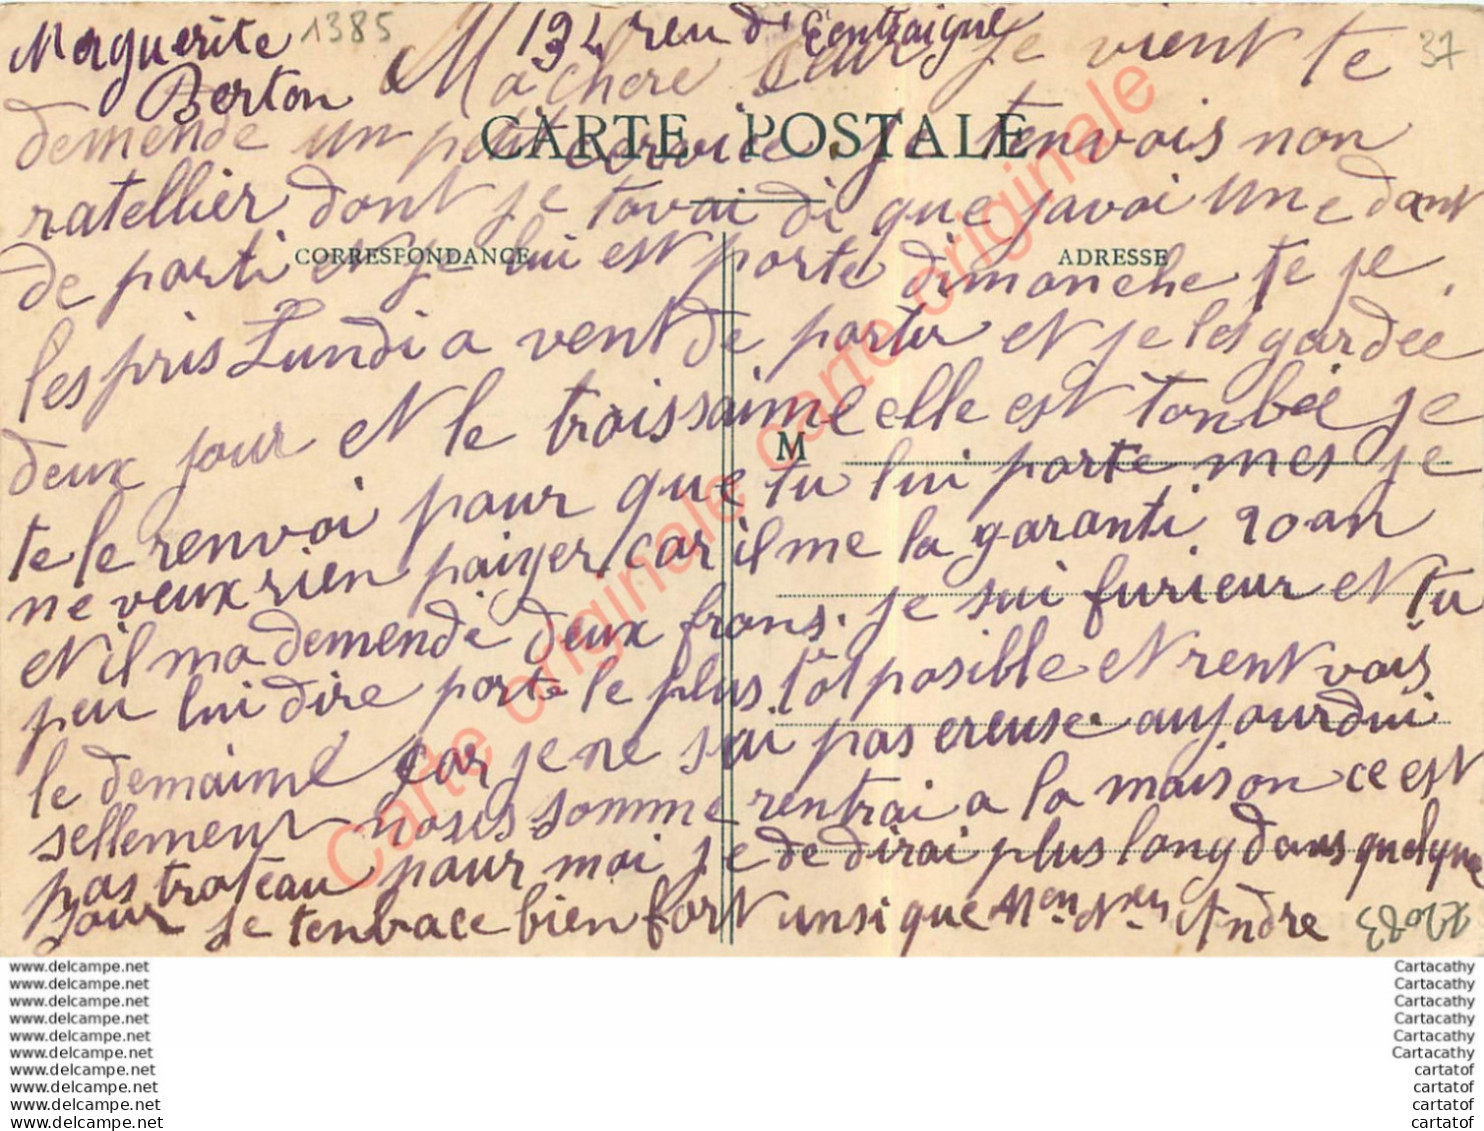 Marguerite 1385 194 reu d'Eentraigue
Berton Ma chere seur je vient te 37
demende un petit cervice. je tenvois non
CARTE POSTALE
ratellier dont je tavai di que javoi une dant
CORRESPONDANCE ADRESSE
de parti et je lui est porte dimanche te je
les pris Lundi a vent de partir et je les gardee
deux jour et le troissaime elle est tonbée je
M
te le renvoi pour que tu lui porte mes je
ne veux rien paiyer car il me la garanti 20 an
et il ma demende deux frans. je sui furieur et tu
peu lui dire porte le plus tôt posible et rent vois
le demaime car je ne sai pas ereuse. aujourdui
sellement nous somme rentrai a la maison ce est
pas trateau pour moi je de dirai plus long dans quelque
Jour je tenbrace bien fort unsi que Andre 722083
Carte originale carte originale
www.delcampe.net Cartacathy
www.delcampe.net Cartacathy
www.delcampe.net Cartacathy
www.delcampe.net Cartacathy
www.delcampe.net Cartacathy
www.delcampe.net Cartacathy
www.delcampe.net cartatof
www.delcampe.net cartatof
www.delcampe.net cartatof
www.delcampe.net cartatof